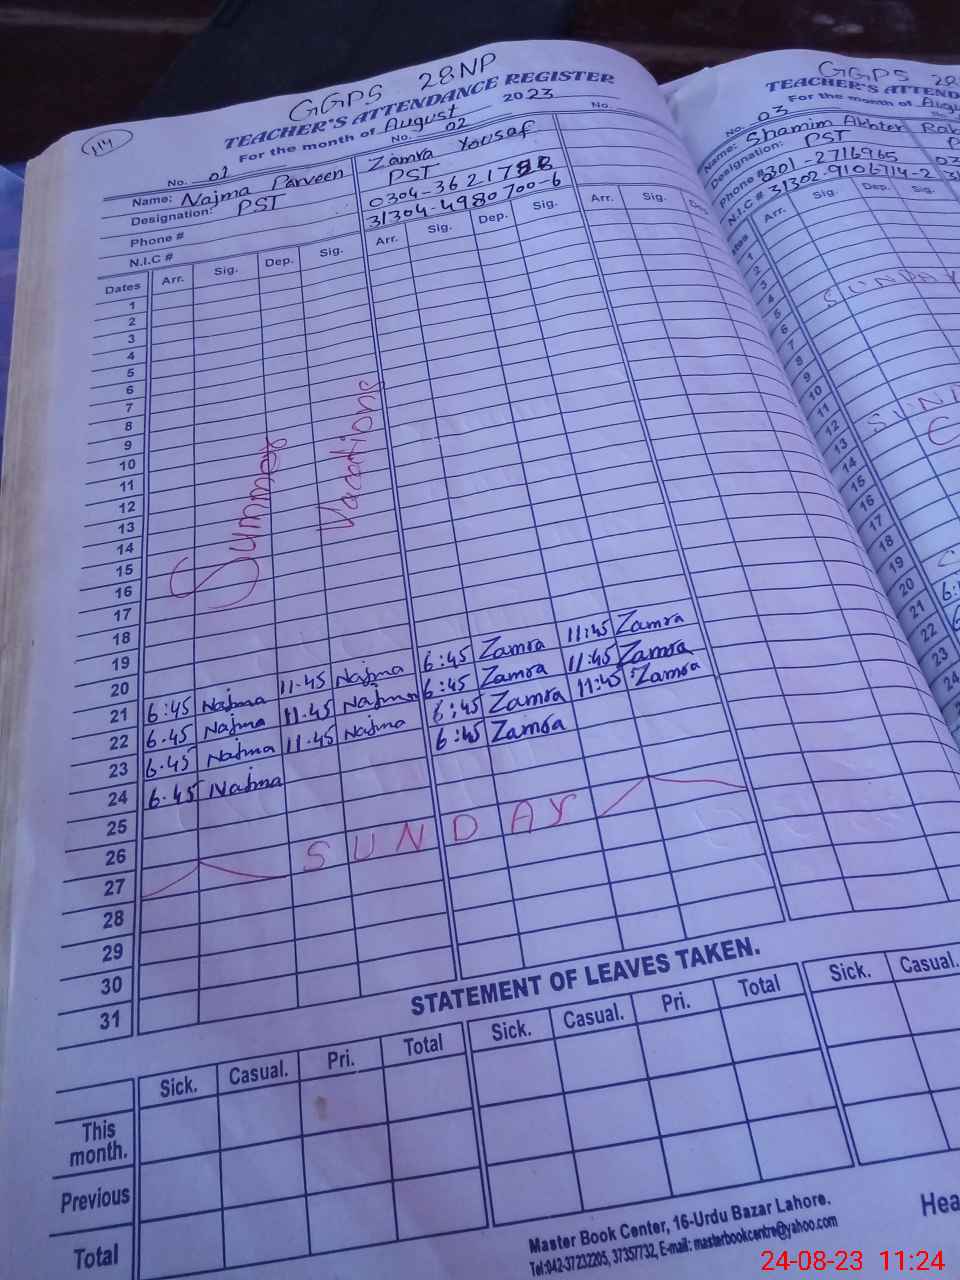 114
GGPS 28NP
TEACHER'S ATTENDANCE REGISTER
For the month of August 2023
No. 01 No. 02 No.
Name: Najma Parveen Zamra Yousaf
Designation: PST PST
Phone # 0304-3621788
N.I.C # 31304-4980700-6
Dates Arr. Sig. Dep. Sig. Arr. Sig. Dep. Sig. Arr. Sig. Dep.
1
2
3
4
5
6
7
8
9
10
11
12
13
14
15
16
17
18
19
20
Summer Vacations
21 6:45 Najma 11.45 Najma 6:45 Zamra 11:45 Zamra
22 6.45 Najma 11.45 Najma 6:45 Zamra 11:45 Zamra
23 6.45 Najma 11.45 Najma 6:45 Zamra 11:45 Zamra
24 6.45 Najma 6:45 Zamra
25
26
27 SUNDAY
28
29
30
31
STATEMENT OF LEAVES TAKEN.
Sick. Casual. Pri. Total Sick. Casual. Pri. Total Sick. Casual.
This month.
Previous
Total
Master Book Center, 16-Urdu Bazar Lahore.
Tel:042-37232205, 37357732, E-mail: masterbookcentre@yahoo.com
Hea
GGPS 28
TEACHER'S ATTEND
For the month of Augu
No. 03
Name: Shamim Akhter
Designation: PST
Phone # 0301-2716965
N.I.C # 31302-9106714-2
Arr. Sig. Dep. Sig.
1
2
3
4
5
6
SUNDAY
7
8
9
10
11
12
13
SUN
14
15
16
17
18
19
20
21 6:
22
23
24
24-08-23 11:24